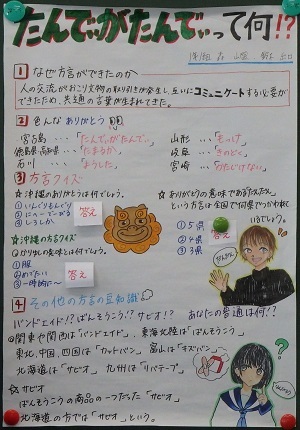 たんでぃがたんでぃって何!?
1 なぜ方言ができたのか
人の交流がおこり文物の取り引きが発生し、互いにコミュニケートする必要が
できたため、共通の言葉が生まれてきた。
2 色んなありがとう
宮古島・・・「たんでぃがたんでぃ」
山形・・・「もっけ」
徳島県高知県・・・「たまるか」
岐阜・・・「きのどく」
石川・・・「きのどくな」
宮崎・・・「かたじけない」
3 方言クイズ
☆沖縄のありがとうは何でしょう。
答え
☆沖縄の方言クイズ
Qかりゆしの意味とは何でしょう。
①服
②めでたい
答え
☆ありがとうの意味であるだんだん
という方言は全国で何県でつかわれ
いるでしょう。
①5県
②4県
③3県
答え
だんだん
4 その他の方言の豆知識
バンドエイド!?ばんそうこう?サビオ!? あなたの普通は何!?
関東や関西は「バンドエイド」、東海北陸は「ばんそうこう」
東北、中国、四国は「カットバン」富山は「キズバン」
北海道は「サビオ」九州は「リバテープ」
☆サビオ
ばんそうこうの商品の一つだった「サビオ」
北海道の方では「サビオ」という。